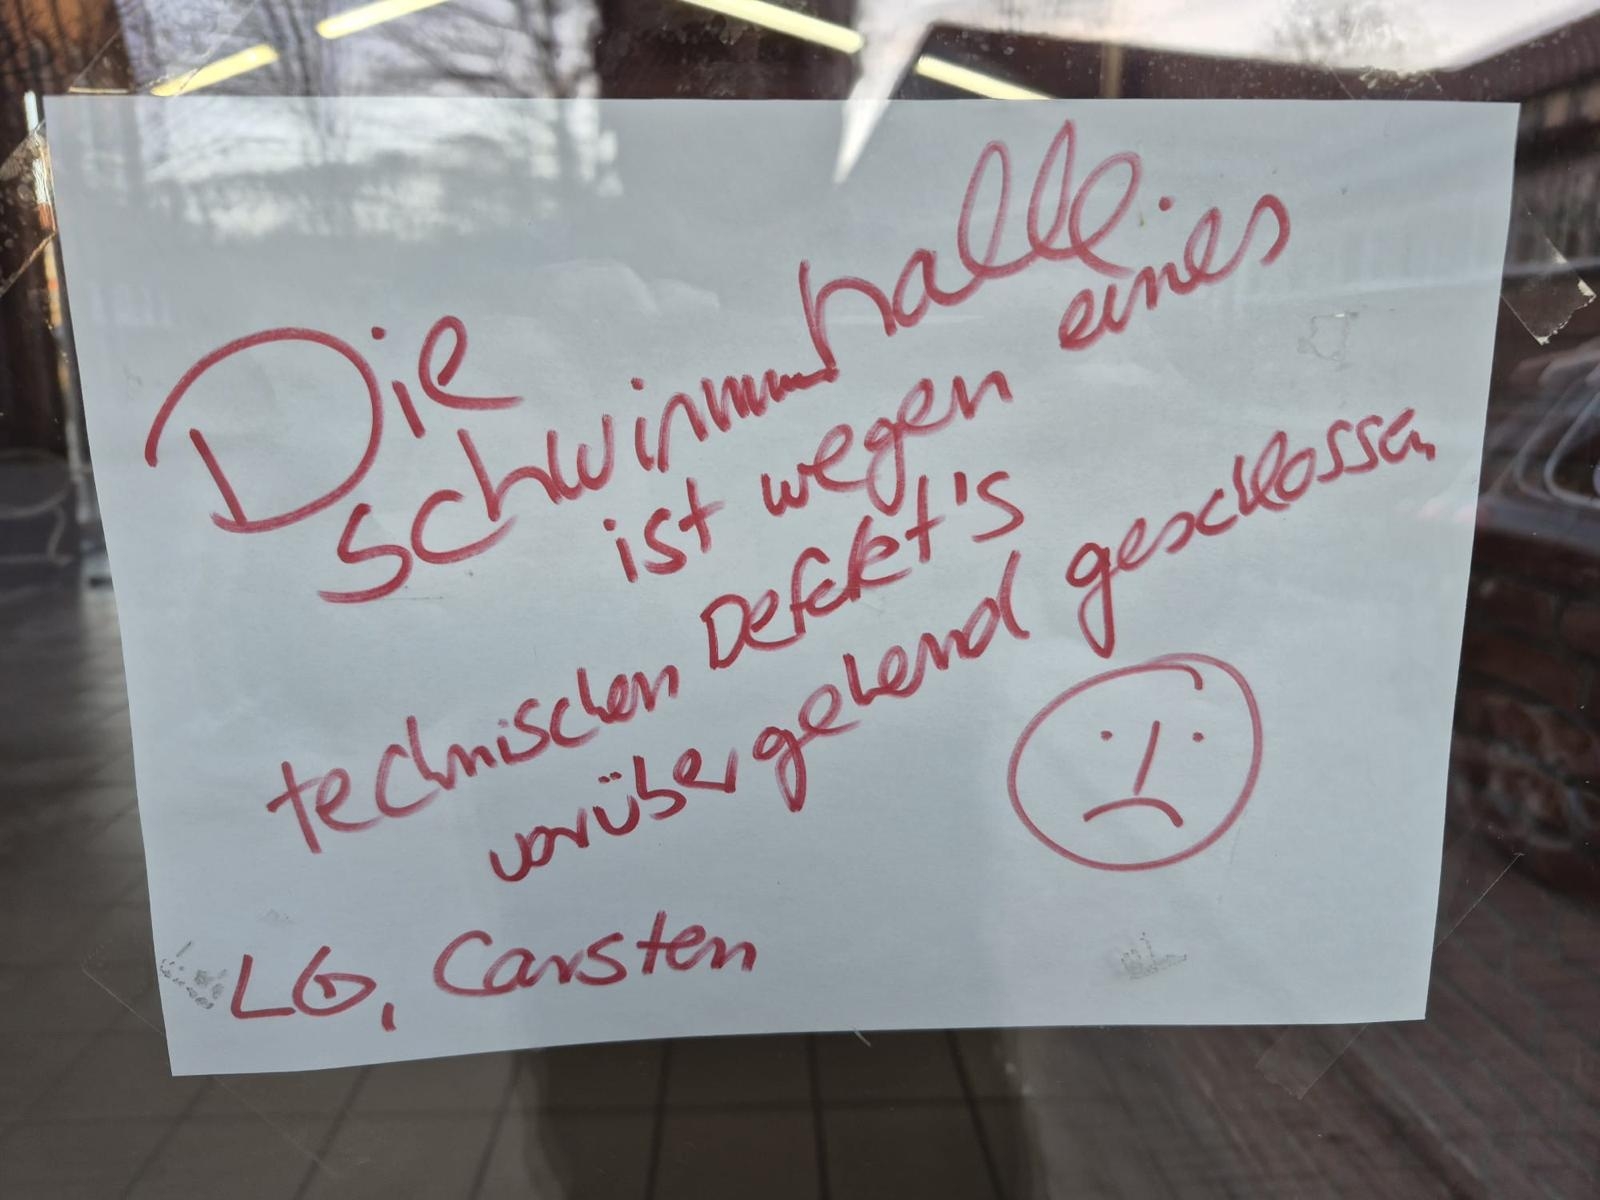 Die
Schwimmhalle
ist wegen eines
technischen Defekt's
vorübergehend geschlossen
LG, Carsten